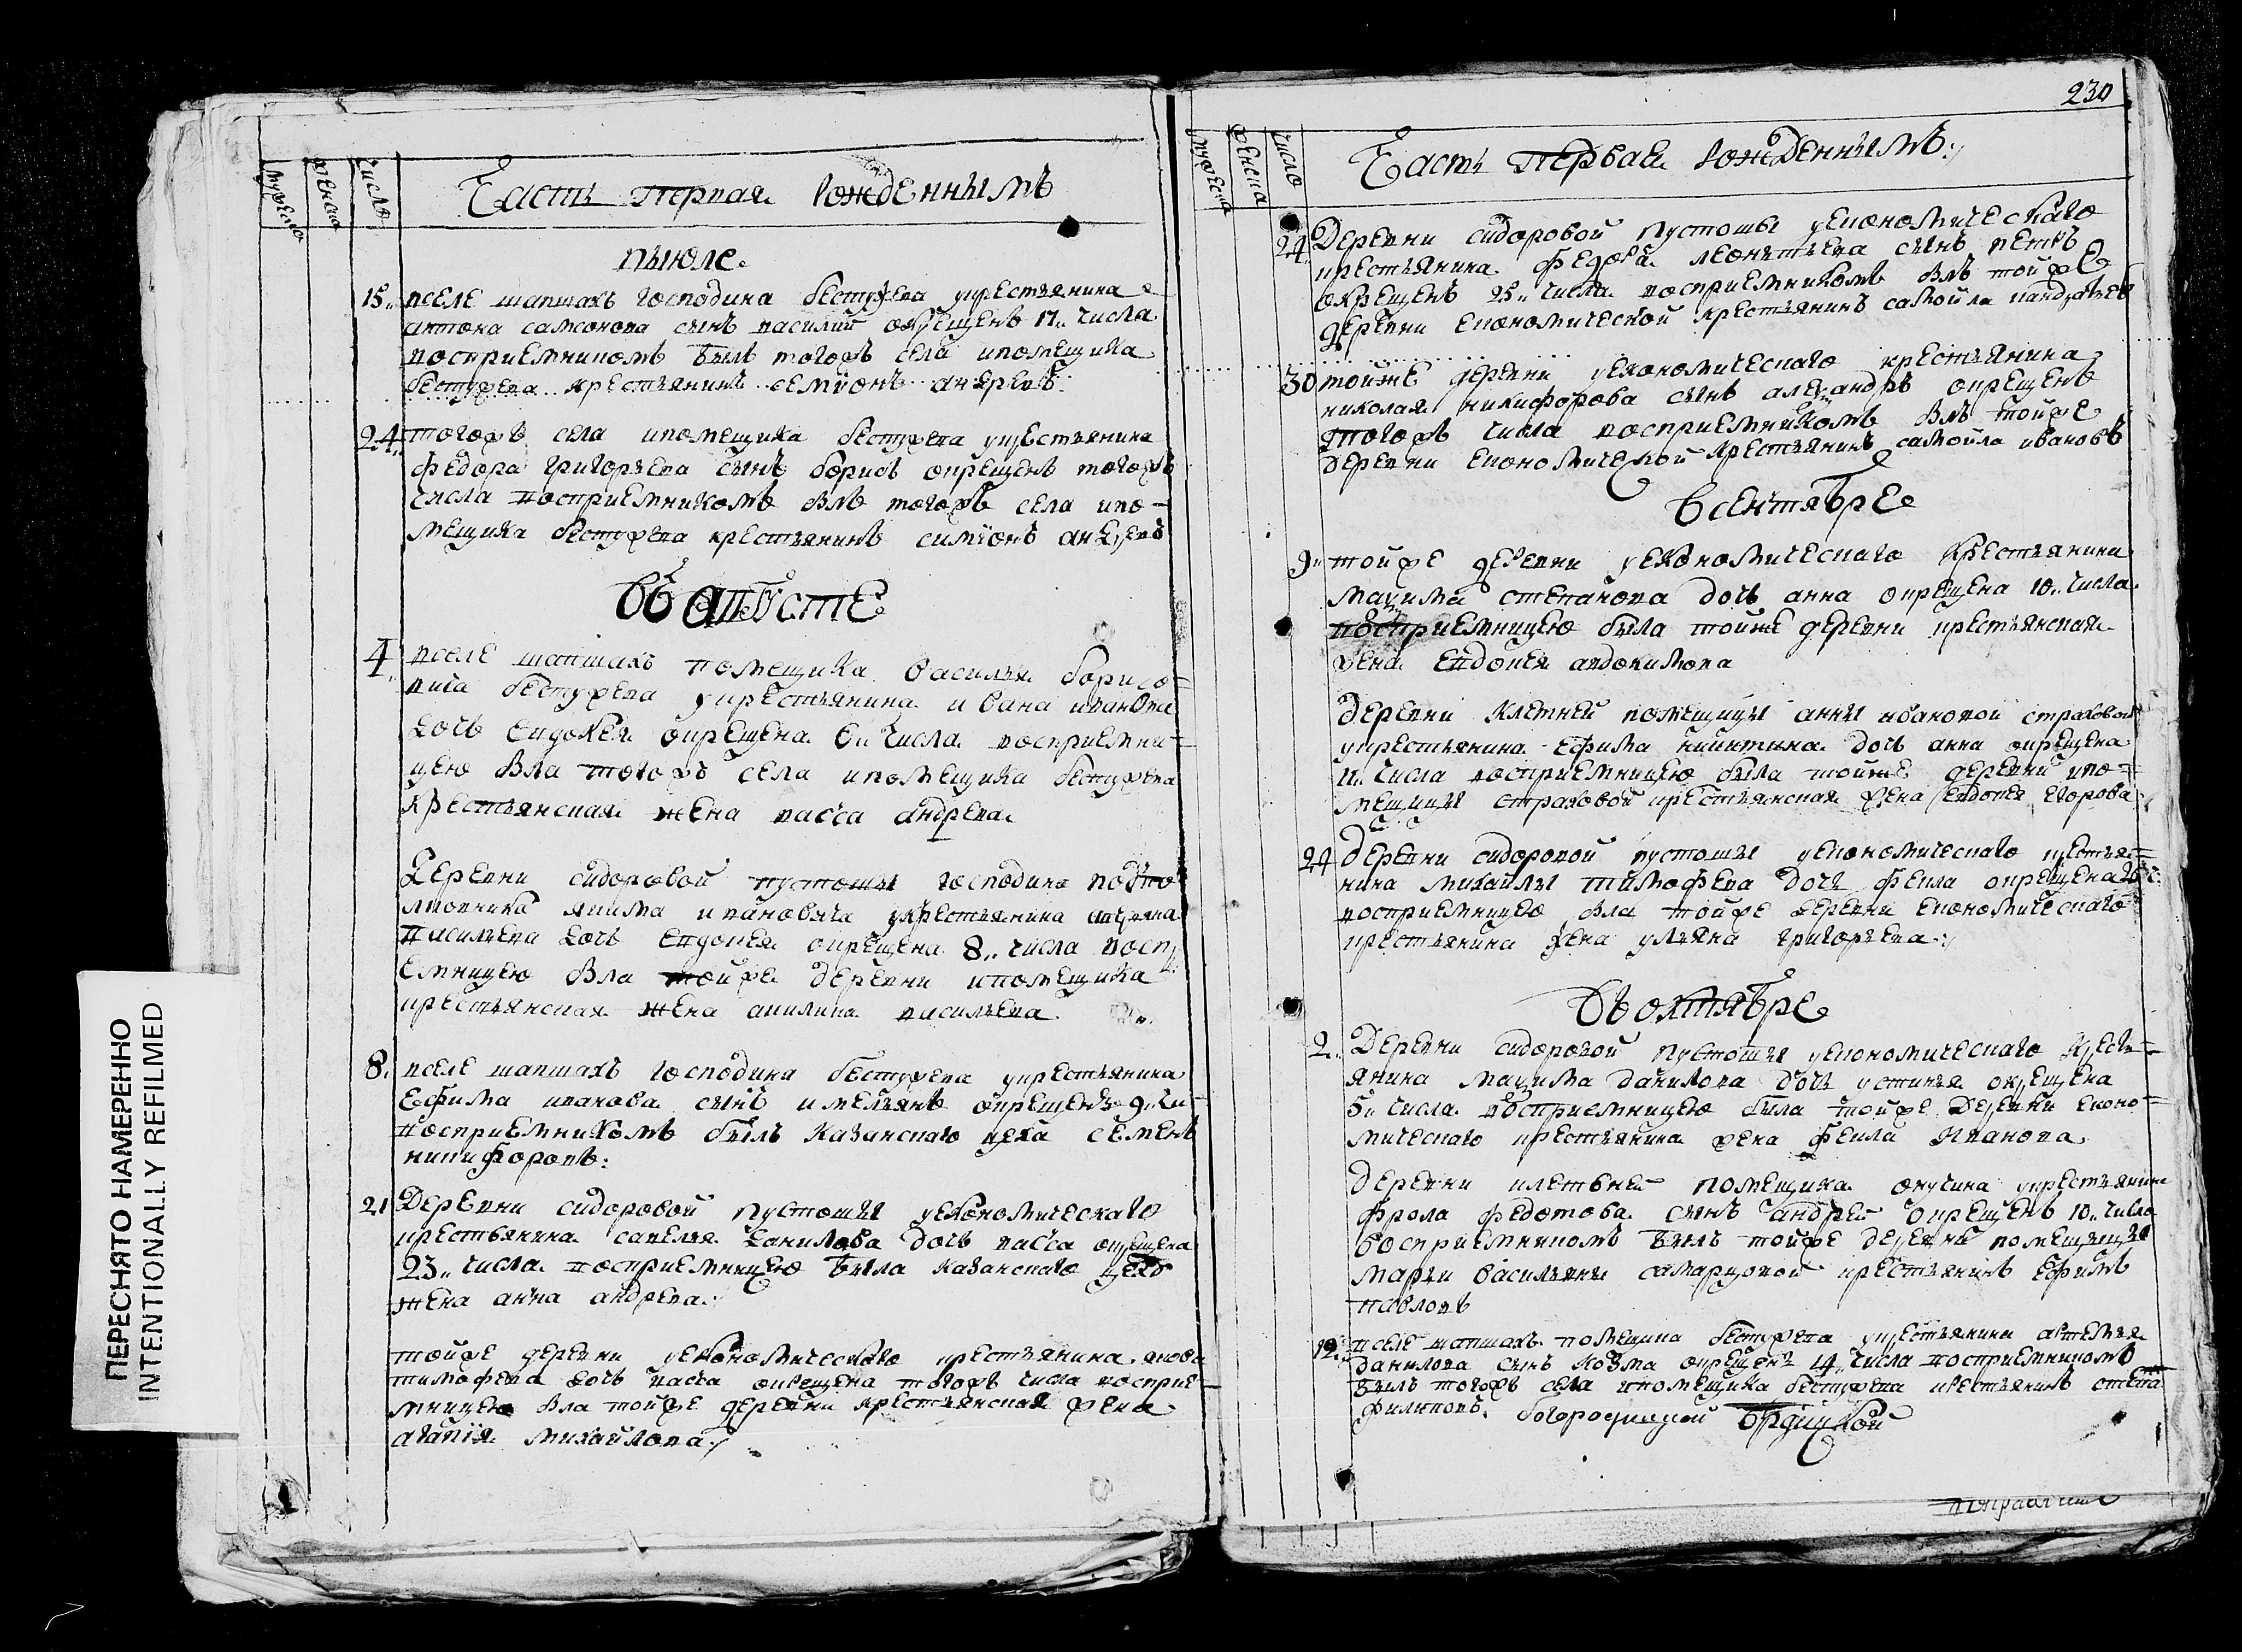 230
мужеска женска число
Часть первая рожденнымъ
въ июле
15 вселе шапшахъ господина бестужева укрестьянина
антона самсонова сынъ василий окрещенъ 17 числа
восприемникомъ былъ тогожъ села ипомещика
бестужева крестьянинъ семионъ
24 тогожъ села ипомещика бестужева укрестьянина
федора григорьева сынъ борисъ окрещенъ тогожъ
числа восприемникомъ былъ тогожъ села ипо-
мещика бестужева крестьянинъ симионъ
Въ августе
4 вселе шапшахъ помещика василья борисо=
вича бестужева укрестьянина ивана иванова
дочь евдокея окрещена 6 числа восприемни-
цею была тогожъ села ипомещика бестужева
крестьянская жена васса андрева
Деревни сидоровой пустоши господина подпо
лковника якима ивановича укрестьянина
васильева дочь евдокея окрещена 8 числа воспри
емницею была тойже деревни ипомещика
крестьянская жена акилина васильева
8 вселе шапшахъ господина бестужева укрестьянина
ефима иванова сынъ имельянъ окрещенъ 9 чи-
восприемникомъ былъ казанского цеха семенъ
никифоровъ
21 Деревни сидоровой пустоши уекономического
крестьянина савелья данилова дочь васса окрещена
23 числа восприемницею была казанского цеха
жена анна андрева
тойже деревни уекономического крестьянина якова
тимофева дочь васса окрещена тогожъ числа восприе-
мницею была тойже деревни крестьянская жена
агапия михайлова
мужеска женска число
Часть первая рожденнымъ
24 Деревни сидоровой пустоши уекономического
крестьянина федора леонтьева сынъ петръ
окрещенъ 25 числа восприемникомъ былъ тойже
деревни економической крестьянинъ самойла
30 тойже деревни уекономического крестьянина
николая никифорова сынъ александръ окрещенъ
тогожъ числа восприемникомъ былъ тойже
деревни економической крестьянинъ самойла ивановъ
Всентябре
9 тойже деревни уекономического крестьянина
максима степанова дочь анна окрещена 10 числа
восприемницею была тойже деревни крестьянская
жена евдокея авдокимова
Деревни клетней помещицы анны ивановой страховой
укрестьянина ефима никитина дочь анна окрещена
11 числа восприемницею была тойже деревни ипо=
мещицы страховой крестьянская жена евдокея егорова
24 Деревни сидоровой пустоши уекономического крестья=
нина михайлы тимофева дочь фекла окрещена
восприемницею была тойже деревни економического
крестьянина жена ульяна григорьева
Въ октябре
2 Деревни сидоровой пустоши уекономического кресть-
янина максима данилова дочь устинья окрещена
5 числа восприемницею была тойже деревни еконо=
мического крестьянина жена фекла иванова
Деревни клетьней помещика окучина укрестьянина
фрола федотова сынъ андрей окрещенъ 10 числа
восприемникомъ былъ тойже деревни помещицы
марьи васильевны самарцовой крестьянинъ ефимъ
павловъ
12 вселе шапшахъ помещика бестужева укрестьянина артемья
данилова сынъ козма окрещенъ 14 числа восприемникомъ
былъ тогожъ села ипомещика бестужева крестьянинъ степа
филиповъ богородицкой
ПЕРЕСНЯТО НАМЕРЕННО
INTENTIONALLY REFILMED